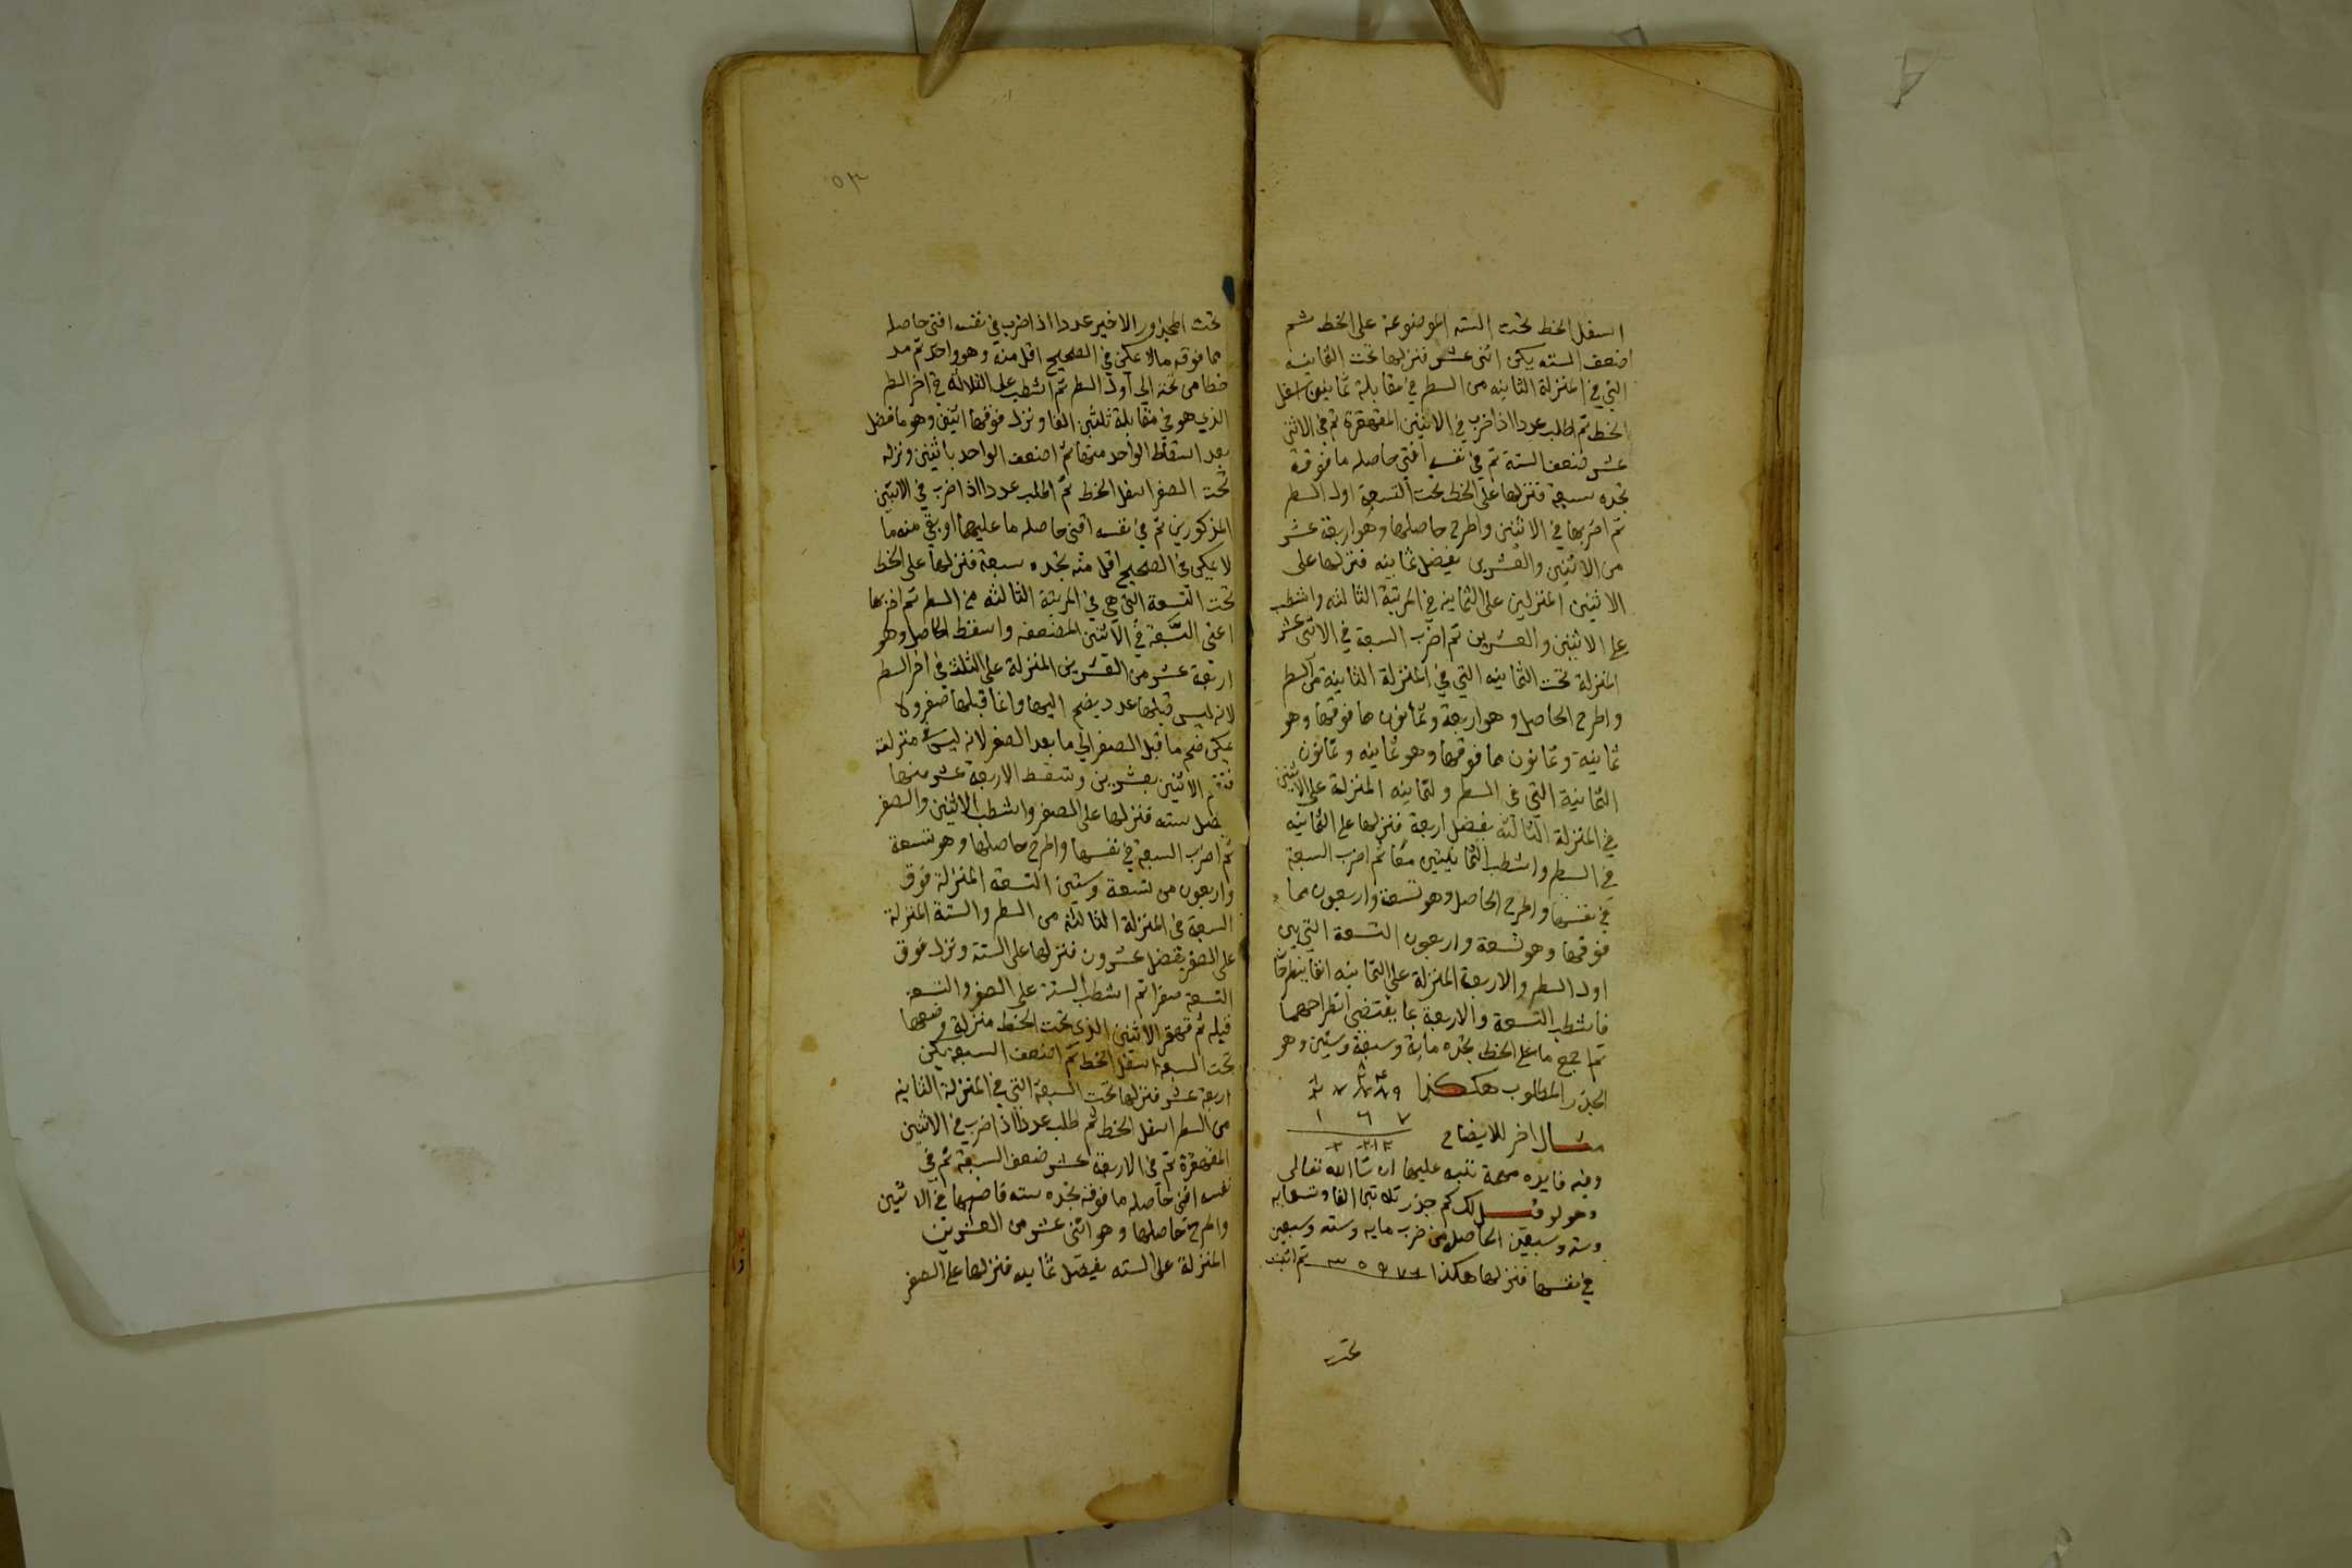 اسفل الخط تحت الستة الموضوعة على الخط ثم
اضعف الستة يكن اثنى عشر فنزلها تحت الثمانية
التي في المنزلة الثانية من السطر في مقابلة ثمانين اسفل
الخط ثم اطلب عددا اذا ضرب في الاثنين المقهقرة ثم في الاثنى
عشر ضعف الستة ثم في نفسه افنى حاصله ما فوقه
تجده سبعة فنزلها على الخط تحت التسعة اول السطر
ثم اضربها في الاثنين واطرح حاصلها وهو اربعة عشر
من الاثنين والعشرين يفضل ثمانية فنزلها على
الاثنين المنزلين على الثمانية في المرتبة الثالثة واشطب
على الاثنين والعشرين ثم اضرب السبعة في الاثنى عشر
المنزلة تحت الثمانية التي في المنزلة الثانية من السطر
واطرح الحاصل وهو اربعة وثمانون مما فوقها وهو
ثمانية وثمانون مما فوقها وهو ثمانية وثمانون
الثمانية التي في السطر والثمانية المنزلة على الاثنين
في المنزلة الثالثة يفضل اربعة فنزلها على الثمانية
في السطر واشطب الثمانيتين معا ثم اضرب السبعة
في نفسها واطرح الحاصل وهو تسعة واربعون مما
فوقها وهو تسعة واربعون التسعة التي هي
اول السطر والاربعة المنزلة على الثمانية
فاشطب التسعة والاربعة بما يقتضى انطراحهما
ثم اجمع ما على الخط تجده ماية وسبعة وستين وهو
الجذر المطلوب هكذا ٢ ٧ ٨ ٨ ٩
١ ٦ ٧
مثال اخر للايضاح
وفيه فايدة مهمة تنبه عليها ان شا الله تعالى
وهو لو قيل لك كم جذر ثلاثين الفا وتسعماية
وستة وسبعين الحاصل من ضرب ماية وستة وسبعين
في نفسها فنزلها هكذا ٣٠٩٧٦ ثم اثبت
تحت
تحت المجذور الاخير عددا اذا ضرب في نفسه افنى حاصله
مما فوقه ما لا يمكن في الصحيح اقل منه وهو واحد ثم مد
خطا من تحته الى اول السطر ثم اشطب على الثلاثة في اخر السطر
الذي هو في مقابلة ثلثين الفا ونزل فوقها اثنين وهو ما فضل
بعد اسقاط الواحد منها ثم اضعف الواحد باثنين ونزله
تحت الصفر اسفل الخط ثم اطلب عددا اذا ضرب في الاثنين
المذكورين ثم في نفسه افنى حاصله ما عليهما او بقي منه ما
لا يمكن في الصحيح اقل منه تجده سبعة فنزلها على الخط
تحت التسعة التي هي في المرتبة الثالثة من السطر ثم اضربها
اعني السبعة في الاثنين المضعفة واسقط الحاصل وهو
اربعة عشر من العشرين المنزلة على الثلثة في اخر السطر
لانه ليس قبلها عدد يضم اليها وانما قبلها صفر ولا
يمكن ضم ما قبل الصفر الى ما بعد الصفر لانه ليس منزلته
الاثنين بعشرين وتسقط الاربعة عشر منها
يفضل ستة فنزلها على الصفر واشطب الاثنين والصفر
ثم اضرب السبعة في نفسها واطرح حاصلها وهو تسعة
واربعون من تسعة وستين التسعة المنزلة فوق
السبعة في المنزلة الثالثة من السطر والستة المنزلة
على الصفر يفضل عشرون فنزلها على الستة ونزل فوق
التسعة صفرا ثم اشطب الستة على الصفر والتسعة
قبله ثم قهقر الاثنين الذي تحت الخط منزلة وضعها
تحت السبعة اسفل الخط ثم اضعف السبعة يكن
اربعة عشر فنزلها تحت السبعة التي في المنزلة الثانية
من السطر اسفل الخط ثم طلب عددا اذا ضرب في الاثنين
المقهقرة ثم في الاربعة عشر ضعف السبعة ثم في
نفسه افنى حاصله ما فوقه تجده ستة فاضربها في الاثنين
واطرح حاصلها وهو اثنى عشر من العشرين
المنزلة على الستة يفضل ثمانية فنزلها على الصفر